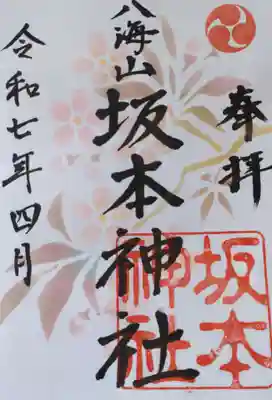 奉拝
八海山
坂本神社
令和七年四月
坂本
神社